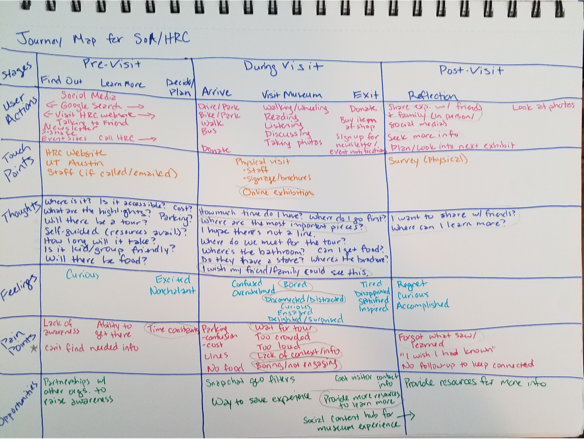 Journey Map for SoA/HRC
Stages
Pre-Visit
Find Out Learn More Decide/Plan
During Visit
Arrive Visit Museum Exit
Post-Visit
Reflection
User Actions
Social Media
← Google Search →
← Visit HRC website →
Talking to Friend
Newsletter
Event Sites Call HRC →
Drive/Park
Bike/Park
Walk
Bus
Donate
Walking/Wheeling
Reading
Listening
Discussing
Taking photos
Donate
Buy item at shop
Sign up for newsletter/event notification
Share exp. w/ friends
& family (in person/
social media)
Look at photos
Seek more info
Plan/Look into next exhibit
Touch Points
HRC website
UT Austin
Staff (if called/emailed)
Physical visit
- Staff
- Signage/brochures
Online exhibition
Survey (physical)
Thoughts
Where is it? Is it accessible? Cost?
What are the highlights?
Will there be a tour? Parking?
Self-guided (resources avail)?
How long will it take?
Is it kid/group friendly?
Will there be food?
How much time do I have? Where do I go first?
Where are the most important pieces?
I hope there's not a line.
Where do we meet for the tour?
Where's the bathroom? Can I get food?
Do they have a store? Where's the brochure?
I wish my friend/family could see this.
I want to share w/ friends?
Where can I learn more?
Feelings
Curious
Excited
Nonchalant
Confused
Overwhelmed
Bored
Disconnected/Distracted
Curious
Engaged
Delighted/Surprised
Tired
Disappointed
Satisfied
Inspired
Regret
Curious
Accomplished
Pain Points
*
Lack of awareness
Ability to get there
Time constraints
Can't find needed info
Parking
- confusion
- cost
Lines
No food
Wait for tour
Too crowded
Too loud
Lack of context/info
Boring/not engaging
Forgot what saw/
learned
"I wish I had known"
No followup to keep connected
Opportunities
Partnerships w/
other orgs. to
raise awareness
Snapchat geo filters
Way to save experience
Get visitor contact info
Provide more resources
to learn more
Social content hub for →
museum experience
Provide resources for more info